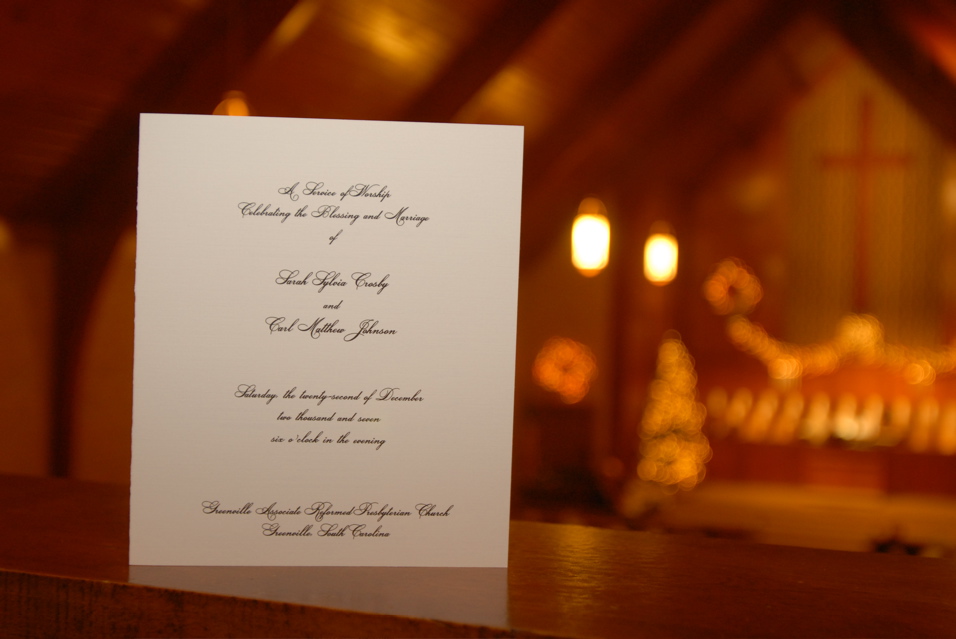 A Service of Worship
Celebrating the Blessing and Marriage
of
Sarah Sylvia Crosby
and
Carl Matthew Johnson
Saturday, the twenty-second of December
two thousand and seven
six o'clock in the evening
Greenville Associate Reformed Presbyterian Church
Greenville, South Carolina